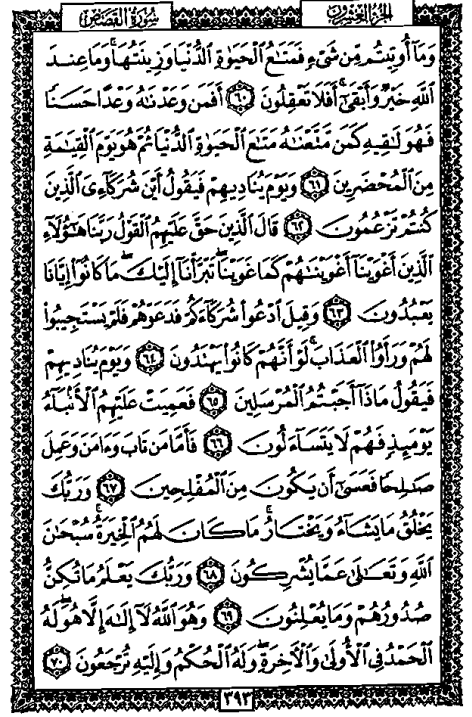 الجزء العشرون سورة القصص
وَمَآ أُوتِيتُم مِّن شَىْءٍ فَمَتَـٰعُ ٱلْحَيَوٰةِ ٱلدُّنْيَا وَزِينَتُهَا ۚ وَمَا عِندَ
ٱللَّهِ خَيْرٌ وَأَبْقَىٰٓ ۚ أَفَلَا تَعْقِلُونَ ٦٠ أَفَمَن وَعَدْنَـٰهُ وَعْدًا حَسَنًا
فَهُوَ لَـٰقِيهِ كَمَن مَّتَّعْنَـٰهُ مَتَـٰعَ ٱلْحَيَوٰةِ ٱلدُّنْيَا ثُمَّ هُوَ يَوْمَ ٱلْقِيَـٰمَةِ
مِنَ ٱلْمُحْضَرِينَ ٦١ وَيَوْمَ يُنَادِيهِمْ فَيَقُولُ أَيْنَ شُرَكَآءِىَ ٱلَّذِينَ
كُنتُمْ تَزْعُمُونَ ٦٢ قَالَ ٱلَّذِينَ حَقَّ عَلَيْهِمُ ٱلْقَوْلُ رَبَّنَا هَـٰٓؤُلَآءِ
ٱلَّذِينَ أَغْوَيْنَآ أَغْوَيْنَـٰهُمْ كَمَا غَوَيْنَا ۖ تَبَرَّأْنَآ إِلَيْكَ ۖ مَا كَانُوٓا۟ إِيَّانَا
يَعْبُدُونَ ٦٣ وَقِيلَ ٱدْعُوا۟ شُرَكَآءَكُمْ فَدَعَوْهُمْ فَلَمْ يَسْتَجِيبُوا۟
لَهُمْ وَرَأَوُا۟ ٱلْعَذَابَ ۚ لَوْ أَنَّهُمْ كَانُوا۟ يَهْتَدُونَ ٦٤ وَيَوْمَ يُنَادِيهِمْ
فَيَقُولُ مَاذَآ أَجَبْتُمُ ٱلْمُرْسَلِينَ ٦٥ فَعَمِيَتْ عَلَيْهِمُ ٱلْأَنۢبَآءُ
يَوْمَئِذٍ فَهُمْ لَا يَتَسَآءَلُونَ ٦٦ فَأَمَّا مَن تَابَ وَءَامَنَ وَعَمِلَ
صَـٰلِحًا فَعَسَىٰٓ أَن يَكُونَ مِنَ ٱلْمُفْلِحِينَ ٦٧ وَرَبُّكَ
يَخْلُقُ مَا يَشَآءُ وَيَخْتَارُ ۗ مَا كَانَ لَهُمُ ٱلْخِيَرَةُ ۚ سُبْحَـٰنَ
ٱللَّهِ وَتَعَـٰلَىٰ عَمَّا يُشْرِكُونَ ٦٨ وَرَبُّكَ يَعْلَمُ مَا تُكِنُّ
صُدُورُهُمْ وَمَا يُعْلِنُونَ ٦٩ وَهُوَ ٱللَّهُ لَآ إِلَـٰهَ إِلَّا هُوَ ۖ لَهُ
ٱلْحَمْدُ فِى ٱلْأُولَىٰ وَٱلْـَٔاخِرَةِ ۖ وَلَهُ ٱلْحُكْمُ وَإِلَيْهِ تُرْجَعُونَ ٧٠
٣٩٣